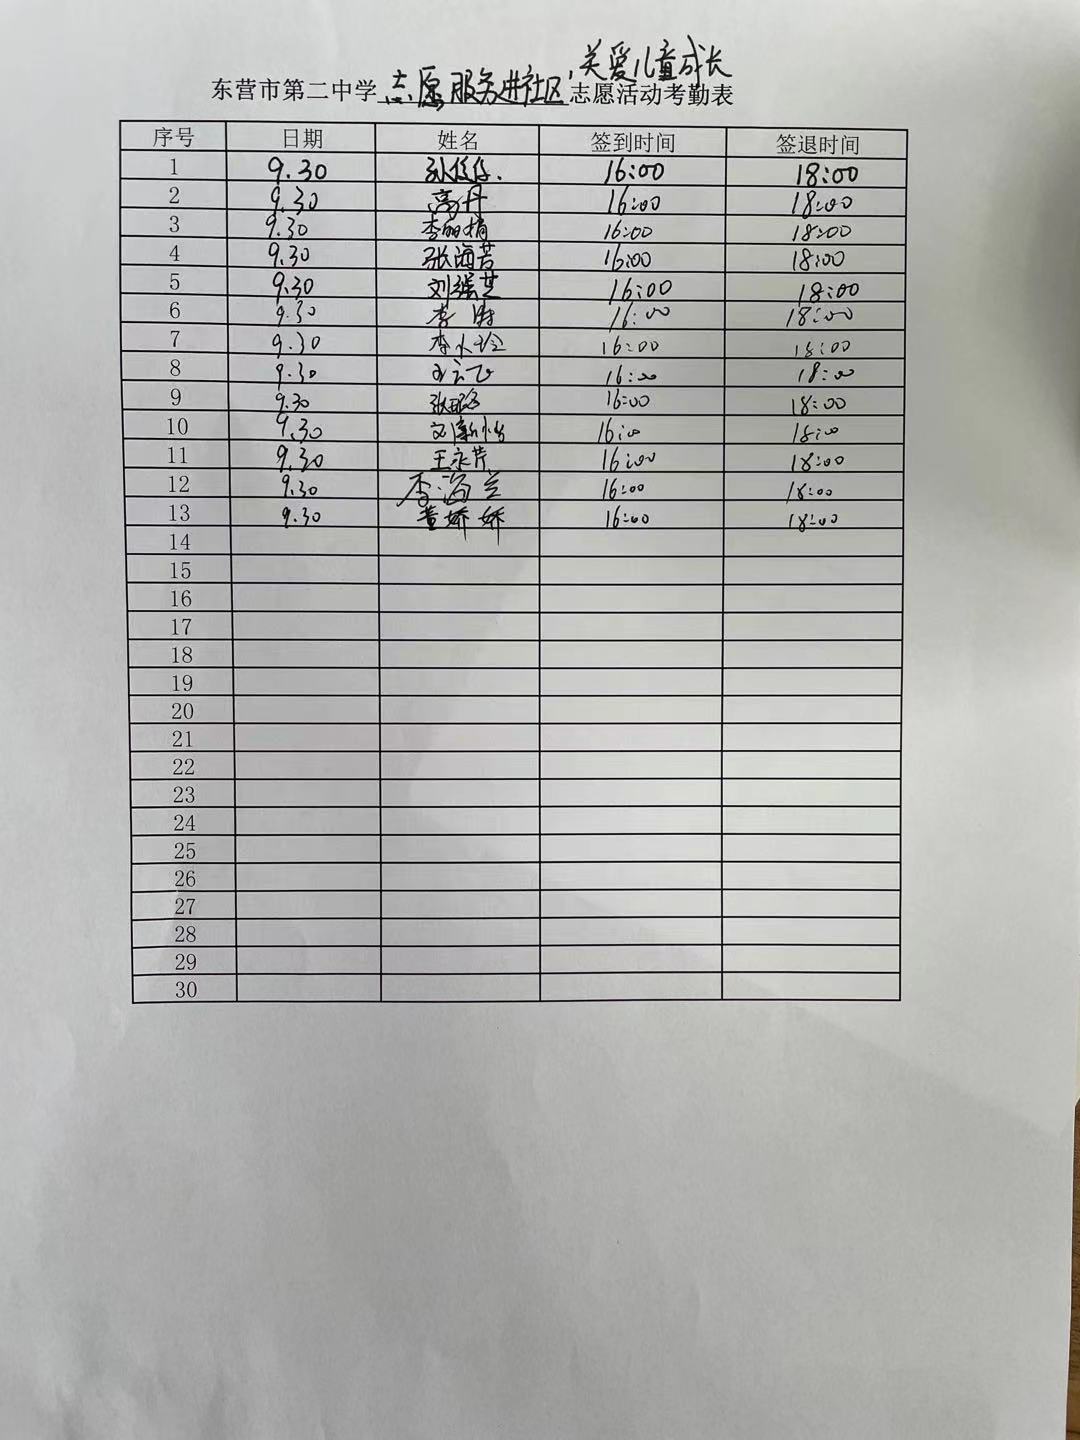 关爱儿童成长
东营市第二中学 志愿服务进社区, 志愿活动考勤表
序号 日期 姓名 签到时间 签退时间
1 9.30 16:00 18:00
2 9.30 高丹 16:00 18:00
3 9.30 李丽娟 16:00 18:00
4 9.30 张海芳 16:00 18:00
5 9.30 刘强芝 16:00 18:00
6 9.30 李 16:00 18:00
7 9.30 李小玲 16:00 18:00
8 9.30 王云飞 16:00 18:00
9 9.30 张 16:00 18:00
10 9.30 16:00 18:00
11 9.30 王永芹 16:00 18:00
12 9.30 李海兰 16:00 18:00
13 9.30 董娇娇 16:00 18:00
14
15
16
17
18
19
20
21
22
23
24
25
26
27
28
29
30